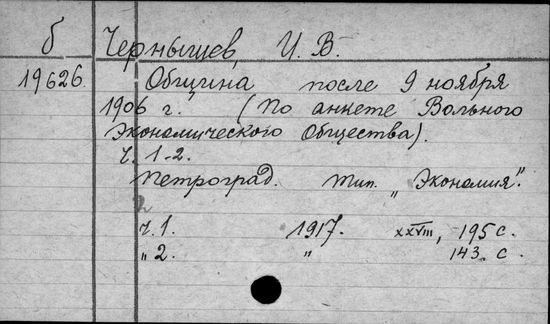 б Чернышев, И. В.
19626. Община после 9 ноября
1906 г. (По анкете Вольного
Экономического Общества).
ч. 1-2.
Петроград. Тип. „Экономия".
2
ч. 1. 1917. XXVIII, 195 с.
„ 2. „ 143. с.